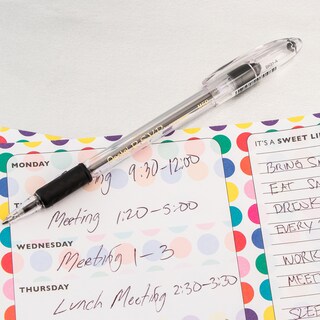 MONDAY
Meeting 9:30-12:00
Meeting 1:20-5:00
WEDNESDAY
Meeting 1-3
THURSDAY
Lunch Meeting 2:30-3:30
IT'S A SWEET LI
BRING SN
EAT SA
DRINK
EVERY
WORK
MED
SLEE